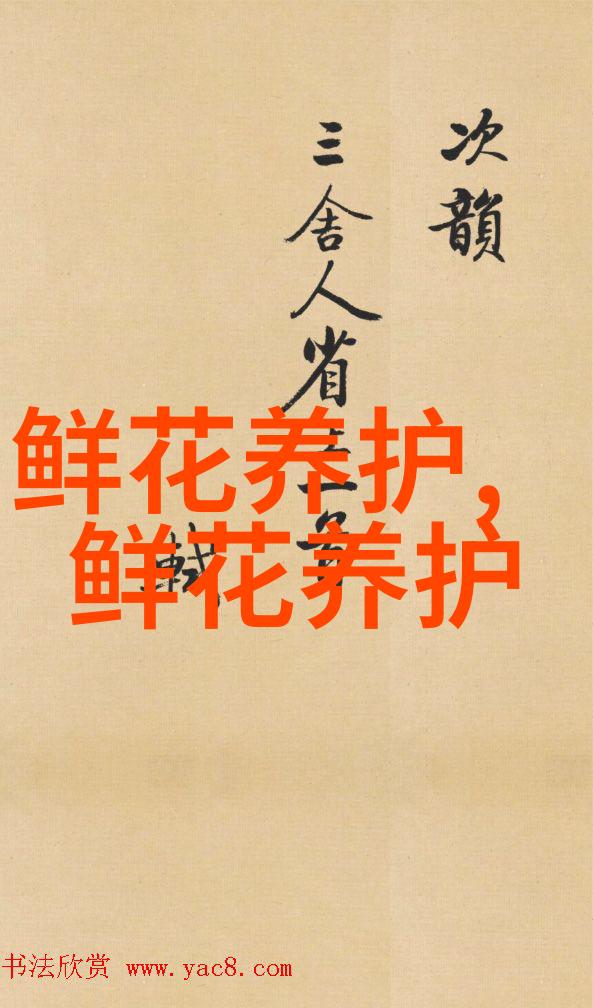 次韻
三舍人省上一首
軾
鲜花养护,
鲜花养护
书法欣赏 www.yac8.com